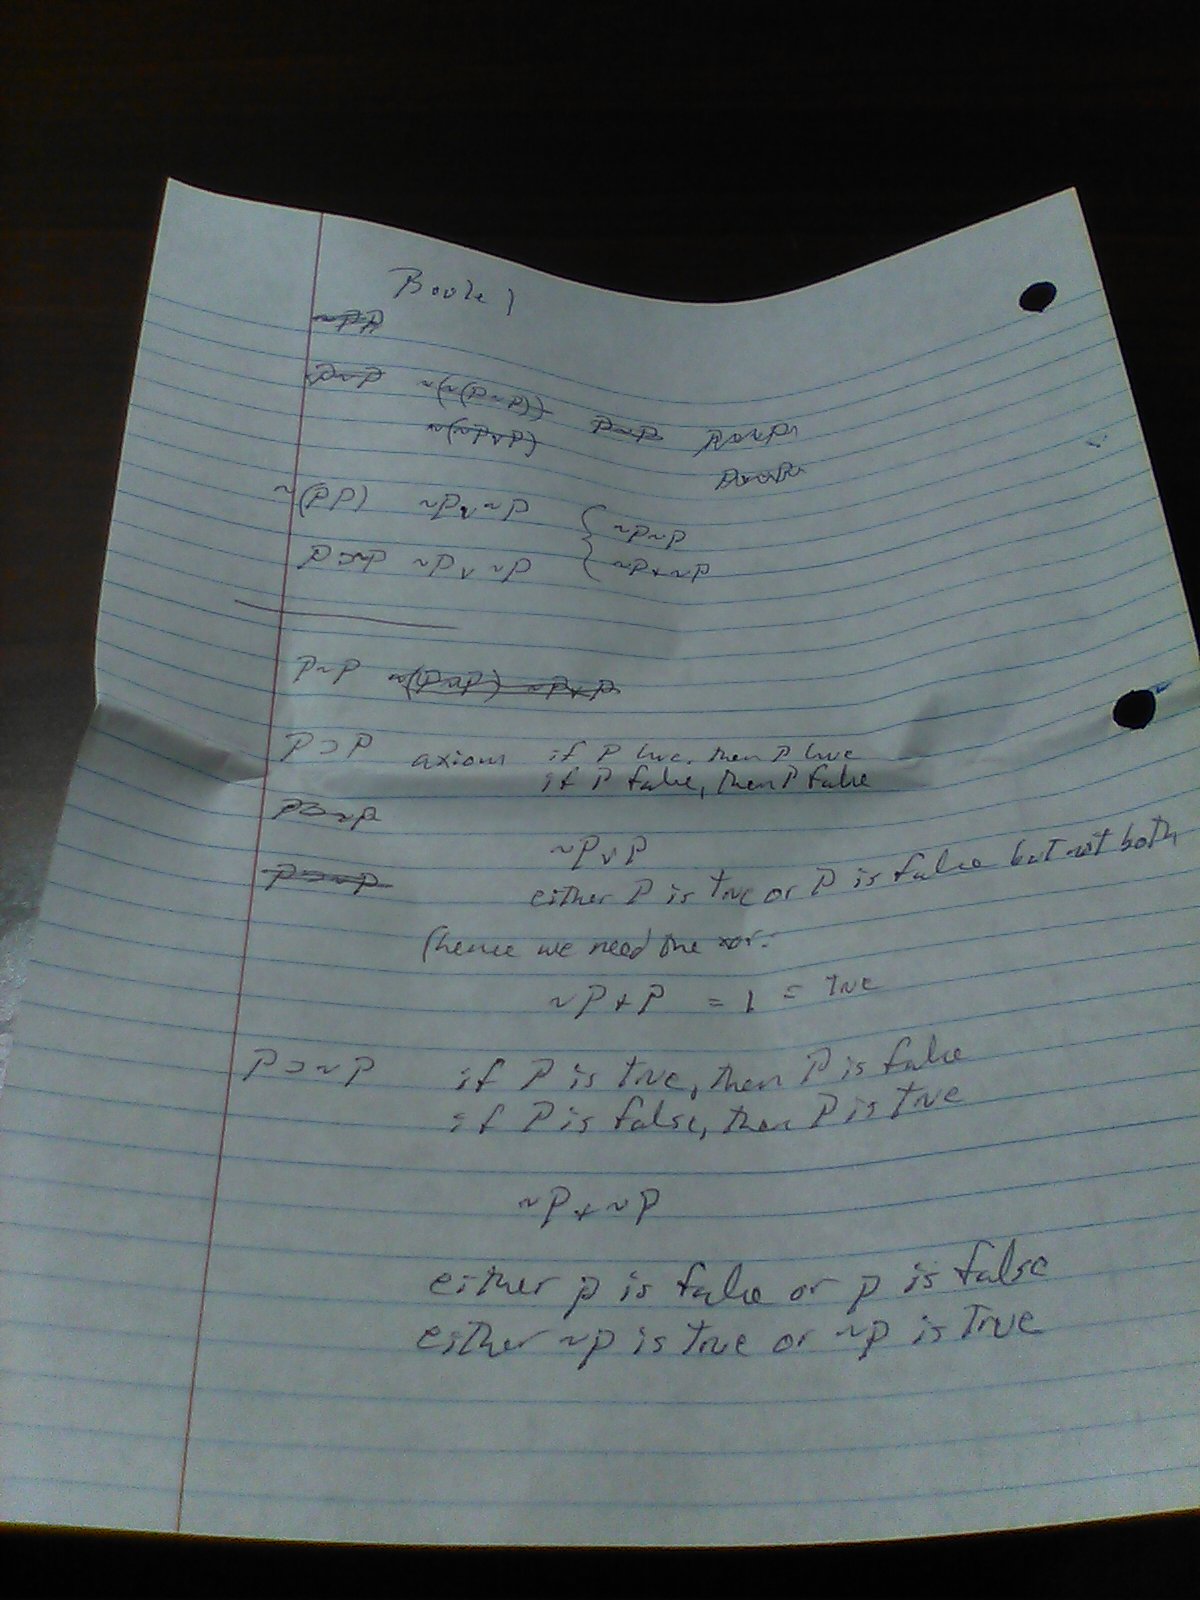 Boole 1
~PP
P~P ~(~(P~P)) P~P
~(~P∨P)
~(PP) ~P∨~P { ~P~P
P⊃~P ~P∨~P ~P+~P
P~P ~(P~P) ~P∨P
P⊃P axiom if P true, then P true
if P false, then P false
P⊃~P
~P∨P
P⊃~P either P is true or P is false but not both
(hence we need the xor:
~P+P = 1 = true
P⊃~P if P is true, then P is false
if P is false, then P is true
~P+~P
either p is false or p is false
either ~p is true or ~p is true